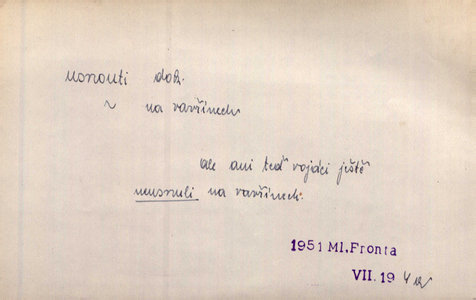 usnouti dok.
~ na vavřínech
ale ani teď vojáci ještě
neusnuli na vavřínech.
1951 Ml. Fronta
VII. 19